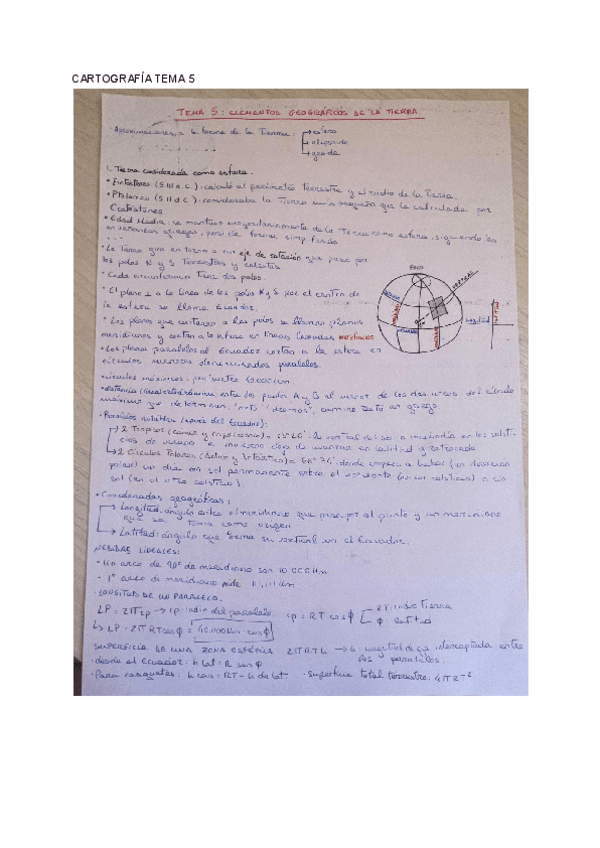 CARTOGRAFÍA TEMA 5
TEMA 5: ELEMENTOS GEOGRÁFICOS DE LA TIERRA.
Aproximaciones a la forma de la Tierra: esfera
elipsoide
geoide
1. Tierra considerada como esfera.
• Eratóstenes (S III a.C.): calculó el perímetro terrestre y el radio de la Tierra.
• Ptolomeo (S II d.C): consideraba la Tierra más pequeña que la calculada por
Eratóstenes
• Edad Media: se mantuvo mayoritariamente de la Tierra como esfera, siguiendo las
griegas, pero de forma simplificada
• La Tierra gira en torno a un eje de rotación que pasa por
los polos N y S terrestres y celestes
• Cada circunferencia tiene dos polos.
• El plano ⊥ a la línea de los polos N y S por el centro de
la esfera se llama Ecuador.
• Los planos que contienen a los polos se llaman planos
meridianos y cortan a la esfera en líneas llamadas meridianos
• Los planos paralelos al Ecuador cortan a la esfera en
círculos menores denominados paralelos.
POLO
VERTICAL
longitud
latitud
• círculos máximos:
entre los puntos A y B al menor de los dos arcos del círculo
máximo que determinan. "orto" "dromos", camino recto en griego.
• Paralelos notables (aparte del Ecuador):
2 Trópicos (Cáncer y Capricornio) a 23°26': la vertical del sol a mediodía en los solsti-
cios de verano e invierno
2 Círculos Polares (Ártico y Antártico) a 66°
un día con sol permanentemente sobre el horizonte
sol (en el otro solsticio).
• Coordenadas geográficas:
Longitud: ángulo entre el meridiano que pasa por el punto y un meridiano
que se toma como origen
Latitud: ángulo que forma su vertical con el Ecuador.
MEDIDAS LINEALES:
- Un arco de 90° de meridiano son 10 000 Km
- 1° arco de meridiano mide 111,11 km
- LONGITUD DE UN PARALELO.
LP = 2πrp → rp: radio del paralelo. rp = RT cosϕ RT: radio Tierra
ϕ latitud
↳ LP = 2π RT cosϕ = 40.000 km cosϕ
SUPERFICIE DE UNA ZONA ESFÉRICA 2πRT h → h: interceptada entre
los paralelos.
- desde el Ecuador: h lat: R senϕ
- Para casquetes: h cas: RT - h de lat - superficie total terrestre: 4πRT²